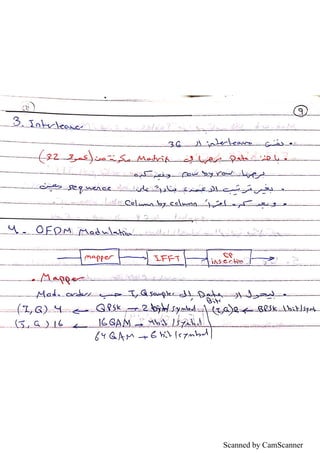 9
3. Interleaver
• نفس ال interleaver 3G
• باخد Data ارصها في Matrix مكونة من (32 عمود)
row by row
• بغير ترتيب الأعمدة بناءا على sequence معين
• وبعد كده اقرأ Column by column
4. OFDM Modulation
mapper IFFT CP insertion
• Mapper
• بيحول ال Data Bits الى I,Q samples حسب Mod. order
(I,Q) 4 ← QPSK → 2 bit/symbol (I,Q) 2 ← BPSK 1bit/symb
(I,Q) 16 ← 16QAM → 4bit/symbol
64QAM → 6bit/symbol
Scanned by CamScanner